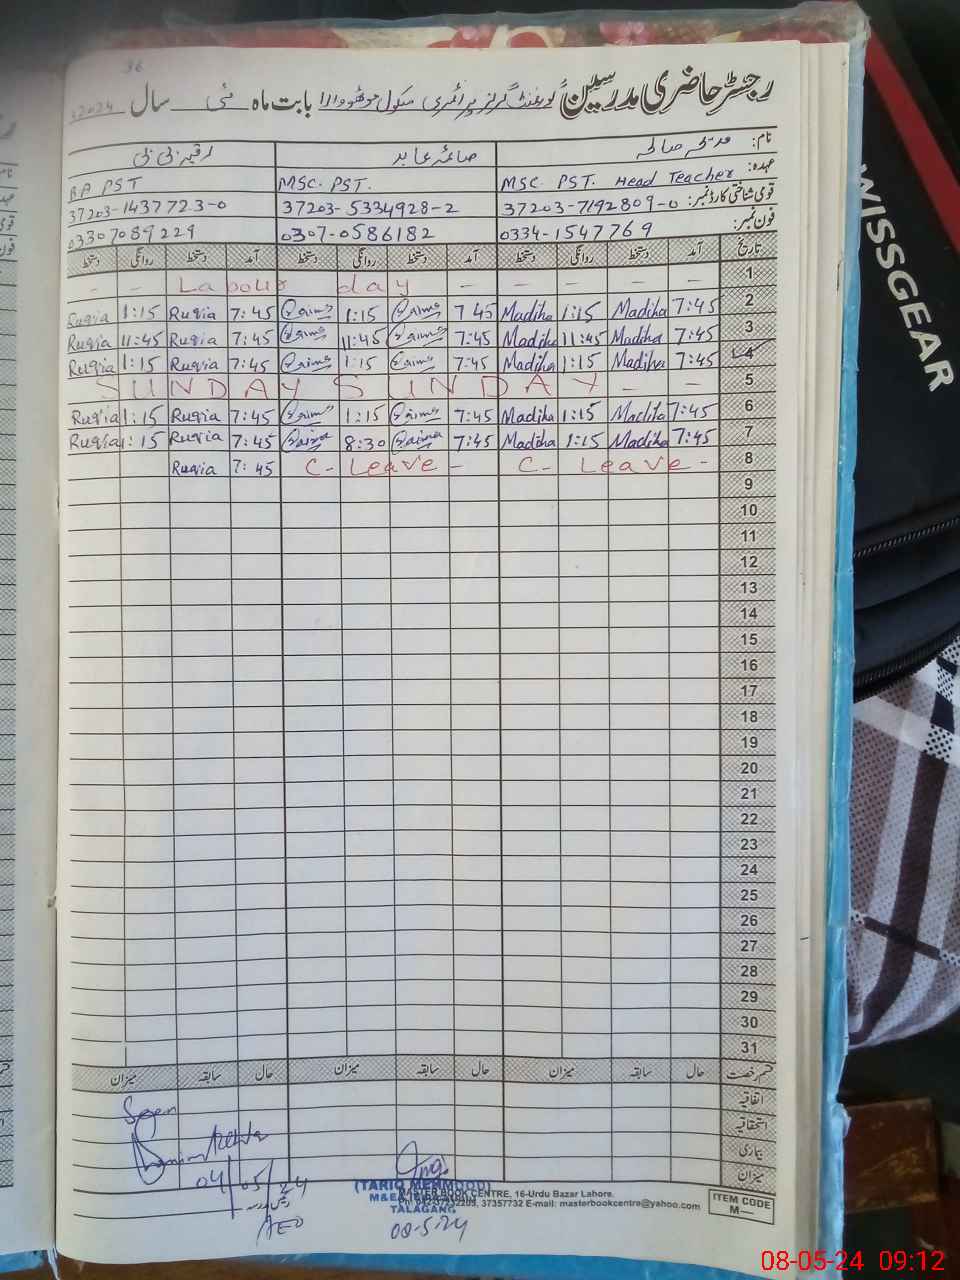 36
رجسٹر حاضری مدرسین گورنمنٹ گرلز پرائمری سکول بابت ماہ مئی سال 2024
نام: مدیحہ صالحہ صائمہ عابد رقیہ بی بی
عہدہ: MSC. PST. Head Teacher MSC. PST. BA PST
قومی شناختی کارڈ نمبر: 37203-7192809-0 37203-5334928-2 37203-1437723-0
فون نمبر: 0334-1547769 0307-0586182 03307089229
تاریخ آمد دستخط روانگی دستخط آمد دستخط روانگی دستخط آمد دستخط روانگی دستخط
- - Labour day - - - - - 1
Ruqia 1:15 Ruqia 7:45 Saima 1:15 Saima 7 45 Madiha 1:15 Madiha 7:45 2
Ruqia 11:45 Ruqia 7:45 Saima 11:45 Saima 7:45 Madiha 11:45 Madiha 7:45 3
Ruqia 1:15 Ruqia 7:45 Saima 1:15 Saima 7:45 Madiha 1:15 Madiha 7:45 4
SUNDAY SUNDAY - - 5
Ruqia 1:15 Ruqia 7:45 Saima 1:15 Saima 7:45 Madiha 1:15 Madiha 7:45 6
Ruqia 1:15 Ruqia 7:45 Saima 8:30 Saima 7:45 Madiha 1:15 Madiha 7:45 7
Ruqia 7:45 C- Leave - C- Leave - 8
9
10
11
12
13
14
15
16
17
18
19
20
21
22
23
24
25
26
27
28
29
30
31
قسم رخصت حال سابقہ میزان حال سابقہ میزان حال سابقہ میزان
اتفاقیہ
استحقاقیہ
بیماری
میزان
04/05/24
AEO
(TARIQ MEHMOOD)
TALAGANG
08-5-24
MASTER BOOK CENTRE, 16-Urdu Bazar Lahore.
37357732 E-mail: masterbookcentre@yahoo.com
ITEM CODE
M—
WISSGEAR
08-05-24 09:12